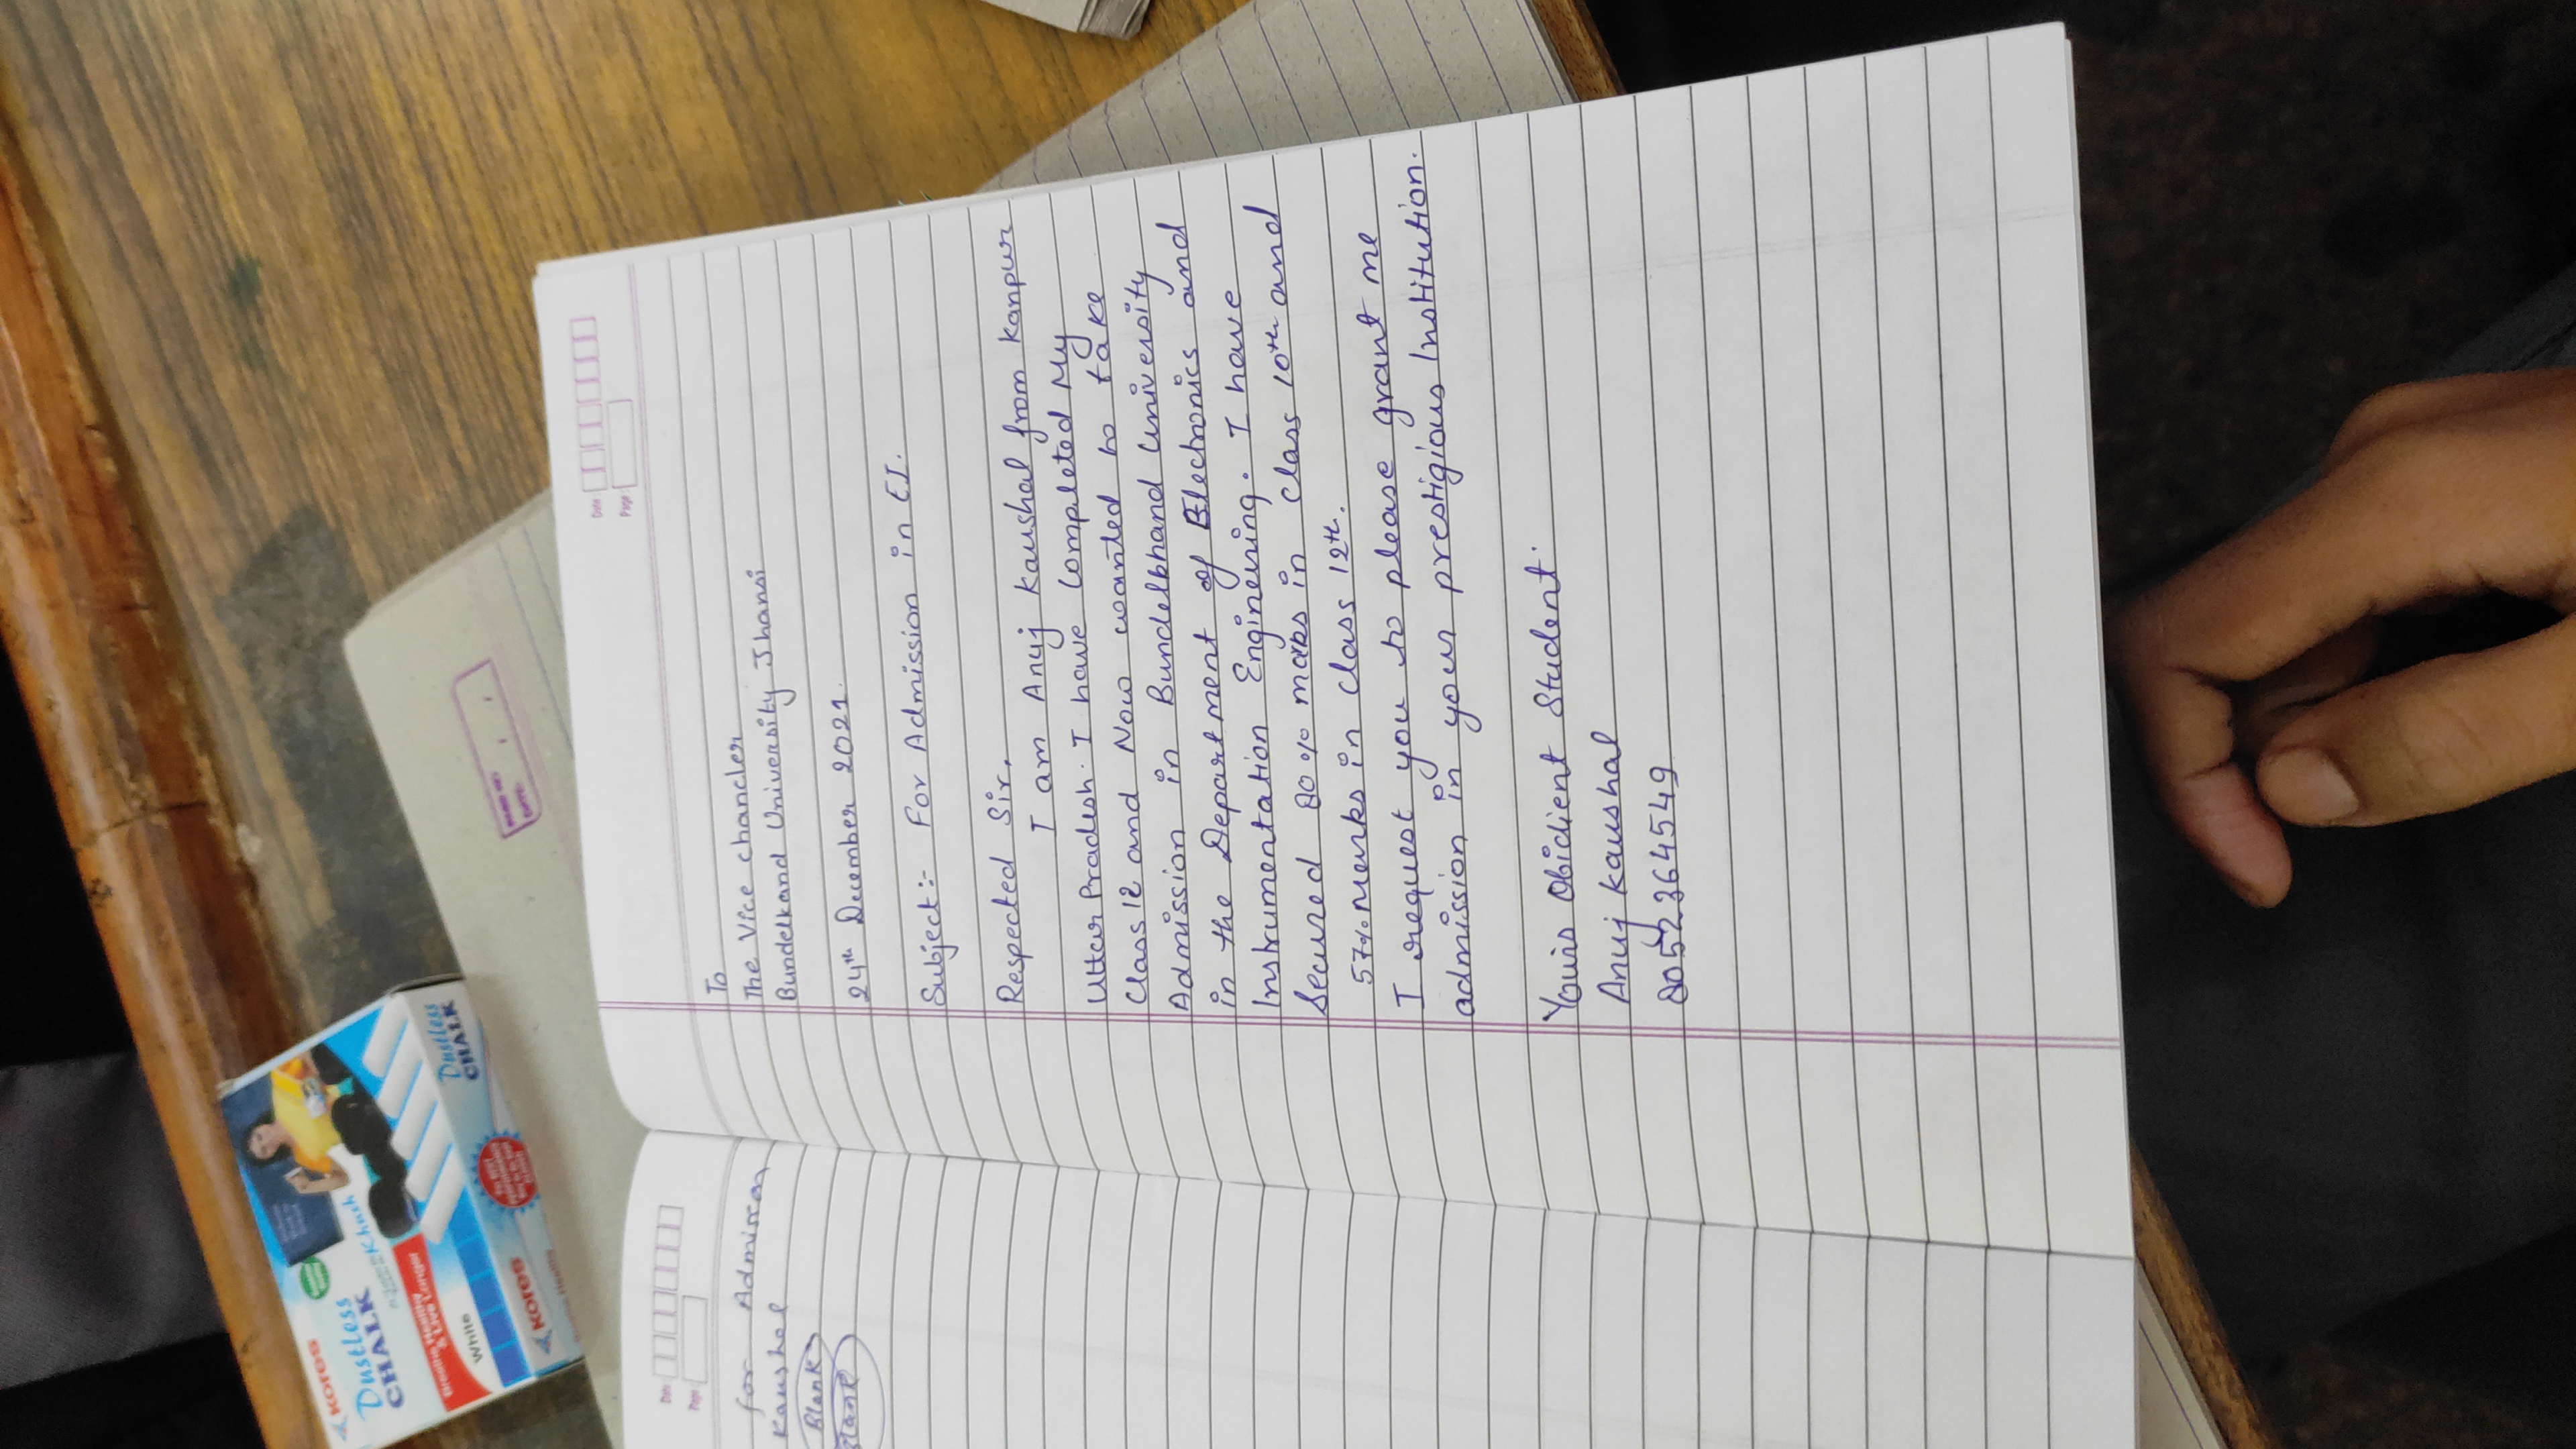 KORES
Dustless
CHALK
Khush
Breathe Healthy
& Live Longer
White
Dustless
CHALK
KORES
DATE:
Date
Page
for Admisson
Kaushal
Blank
Blank
Date
Page
To
The Vice chancler
Bundelkand University Jhansi
24th December 2021.
Subject:- For Admission in EI.
Respected Sir,
I am Anuj Kaushal from Kanpur
Uttar Pradesh. I have Completed My
Class 12 and Now wanted to take
Admission in Bundelkhand University
in the Department of Electronics and
Instrumentation Enginering. I have
Secured 80% marks in Class 10th and
57% Marks in Class 12th.
I request you to please grant me
admission in your prestigious Institution.
Yours Obidient Student.
Anuj Kaushal
8052364549